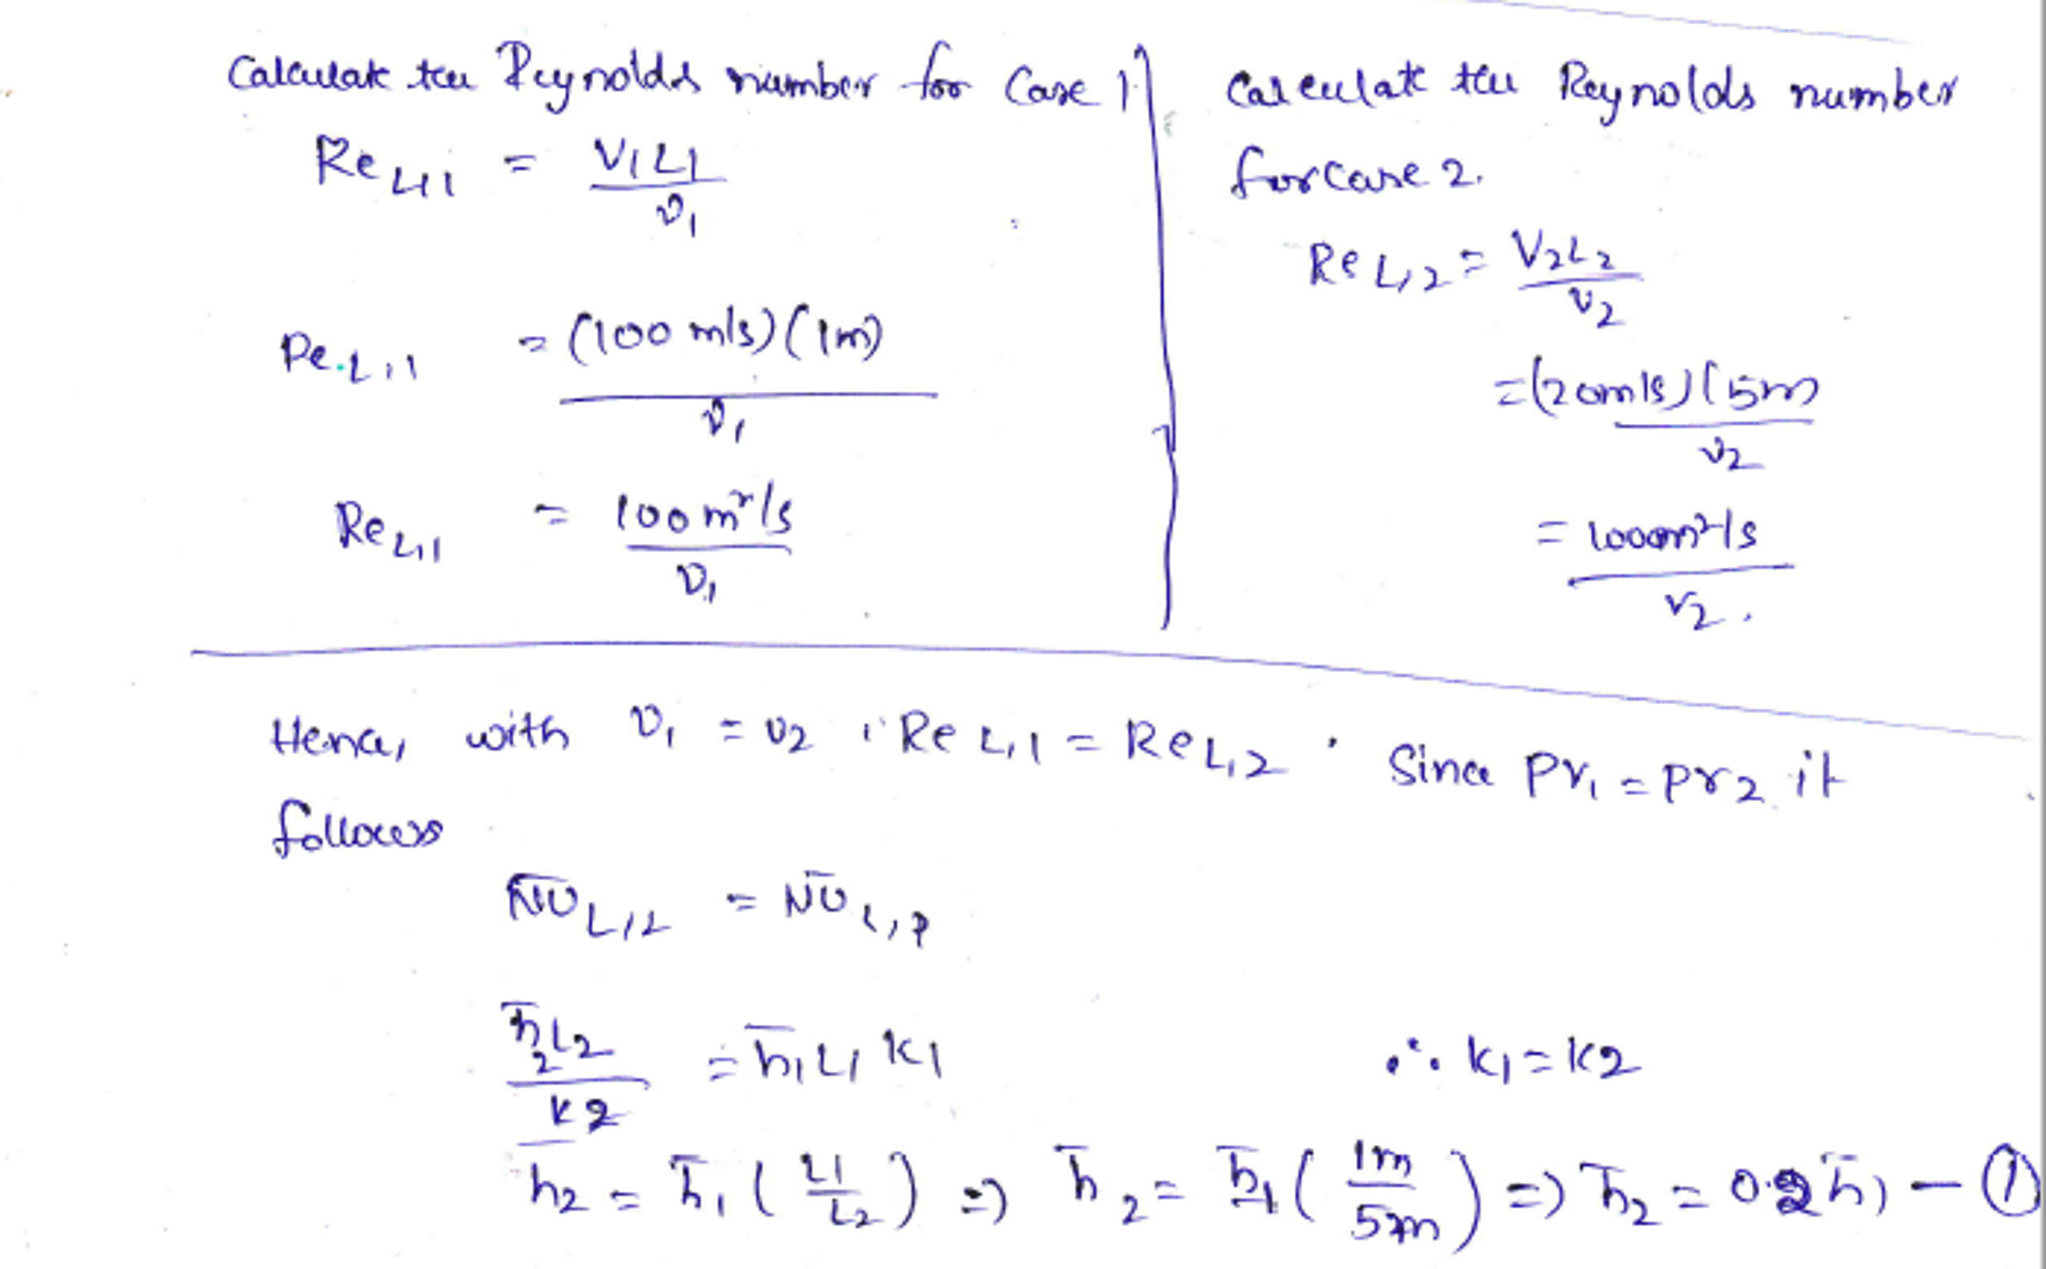 Calculate the Reynolds number for Case 1
Re L,1 = V1L1 / ν1
Re L,1 = (100 m/s) (1m) / ν1
Re L,1 = 100 m²/s / ν1
Calculate the Reynolds number
for case 2.
Re L,2 = V2L2 / ν2
= (20m/s) (5m / ν2
= 1000m²/s / ν2.
Hence, with ν1 = ν2 , Re L,1 = Re L,2 . Since Pr1 = Pr2 it
follows
N̅U̅ L,2 = N̅U̅ L,
h̅2L2 / k2 = h̅1L1 k1 ∴ k1 = k2
h̅2 = h̅1 ( L1 / L2 ) => h̅2 = h̅1 ( 1m / 5m ) => h̅2 = 0.2 h̅1 - ①